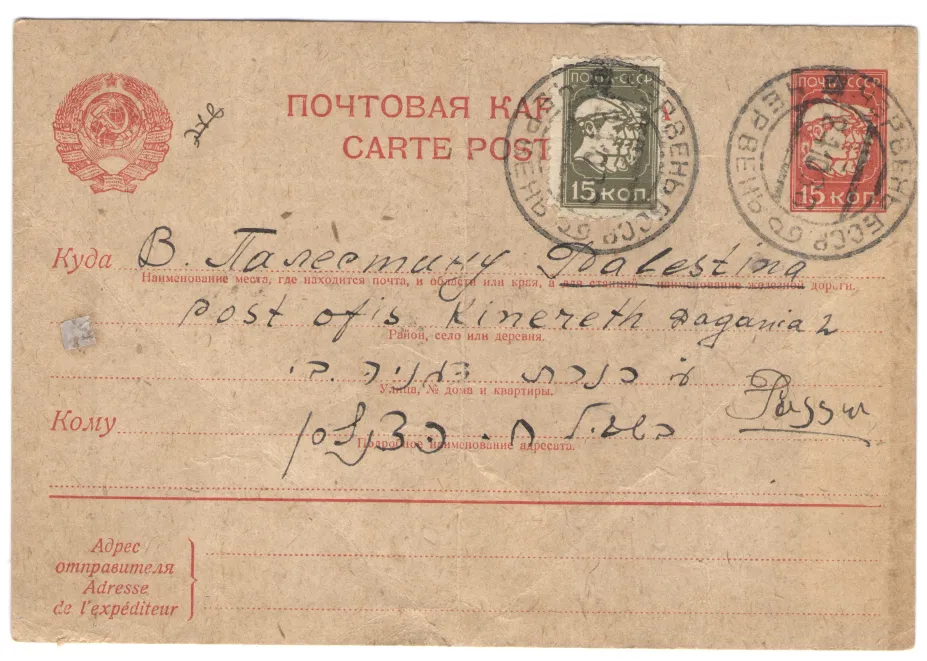 ПОЧТОВАЯ КАР
CARTE POST
ПОЧТА СССР
15 КОП.
ПОЧТА СССР
15 КОП.
ЧЕРВЕНЬ БССР
ЧЕРВЕНЬ БССР
Куда В. Палестину Palestina
Наименование места, где находится почта, и области или края, а для станций – наименование железной дороги.
Post ofis Kinereth Dagania 2
Район, село или деревня.
כנרת דגניה ב׳
Улица, № дома и квартиры.
Кому
בשביל ח.
Подробное наименование адресата.
Адрес
отправителя
Adresse
de l'expéditeur